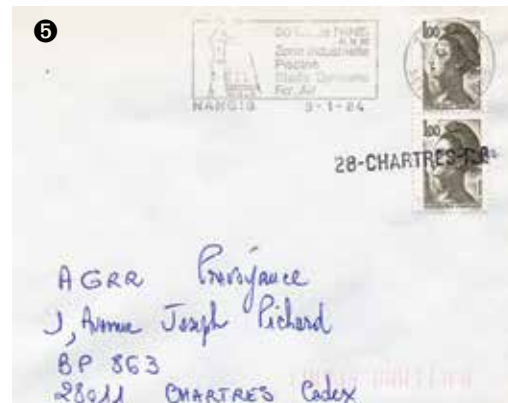 5
Zone Industrielle
Piscine
Stade Omnisports
For. Air
NANGIS 9-1-84
1,00
1,00
28-CHARTRES-
AGRR Prévoyance
1, Avenue Joseph Pichard
BP 863
28011 CHARTRES Cedex